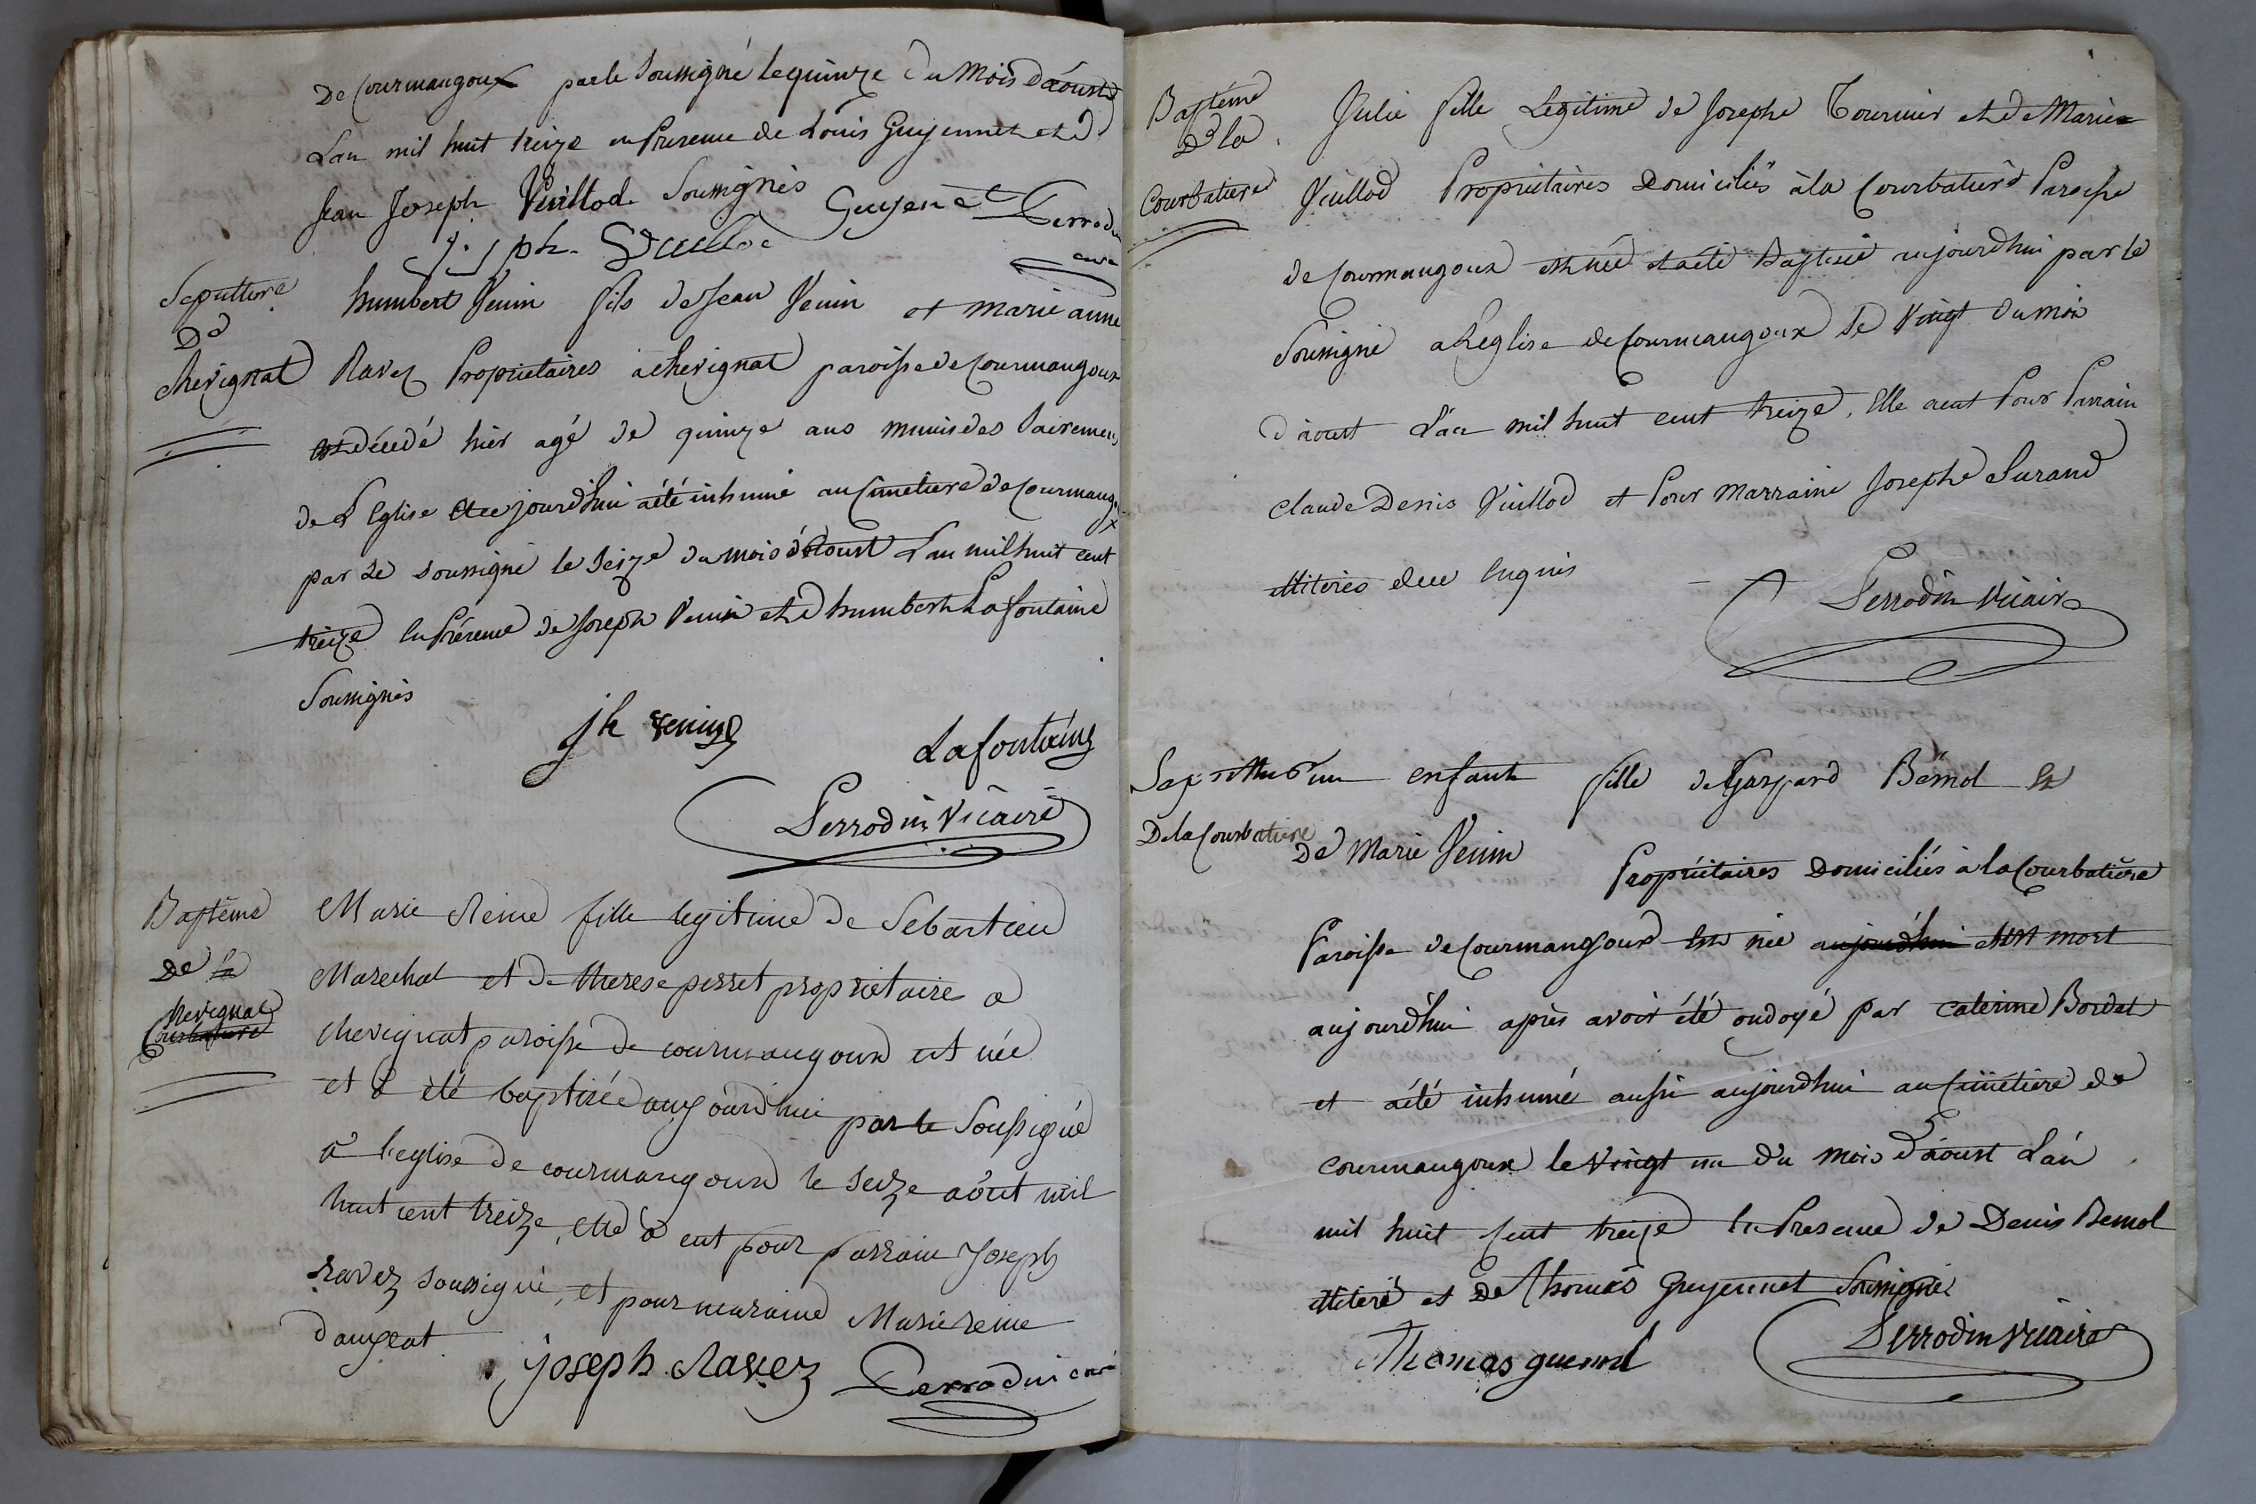 De Courmangoux par le Soussigné le quinze du Mois d'aoust
L'an mil huit treize en Presence de Louis Guyennet et de
Jean Joseph Vuillod Soussignés
Guyenet Perrodin
curé
j. jph. Vuillod
Sepulture
De
Chevignat
humbert Venin fils de Jean Venin et marie anne
Ravez Propriétaires a chevignat paroisse de Courmangoux
est décédé hier agé de quinze ans munis des Sacremens
de L'Eglise et ce jourdhui a été inhumé au Cimetiere de Courmangx
par Le soussigné le Seize du mois d'aoust L'an mil huit cent
treize En Présence de Joseph Venin et de humbert Lafontaine
Soussignés
jh Venin
Lafontaine
Perrodin Vicaire
Baptême
De la
Chevignat
Courbatiere
Marie Reine fille legitime de Sebastien
Marechal et de therese perret propriétaire a
chevignat paroisse de courmangoux est née
et a été baptisée aujourd'hui par le Soussigné
a l'eglise de courmangoux le seize aôut mil
huit cent treize, elle a eut pour parrain Joseph
ravez soussigné, et pour maraine Marie reine
dangeat
joseph Ravez Perrodin curé
Baptême
De la
Courbatiere
Julie fille Legitime de Josephe Tournier et de Marie
Vuillod Propriétaires Domiciliés à la Courbatiere Paroisse
de Courmangoux est née et a été Baptisée aujourdhui par le
Soussigné a L'église de Courmangoux le vingt du mois
d'aoust L'an mil huit cent treize, Elle a eut Pour Parrain
Claude Denis Vuillod et Pour Marraine Josephe Durand
illiterés de ce Enquis
Perrodin Vicaire
Sepulture
De la Courbatiere
un enfant fille de Gaspard Bémol et
de Marie Venin Propriétaires Domiciliés à la Courbatière
Paroisse de Courmangoux est née aujourdhui et est mort
aujourdhui après avoir été ondoyé par Caterine Bordet
et a été inhumé aussi aujourdhui au Cimetière de
Courmangoux le vingt un du mois d'aoust L'an
mil huit Cent treize En Presence de Denis Bemol
illiteré et de Thomas Guyennet Soussigné
Perrodin Vicaire
Thomas guennet